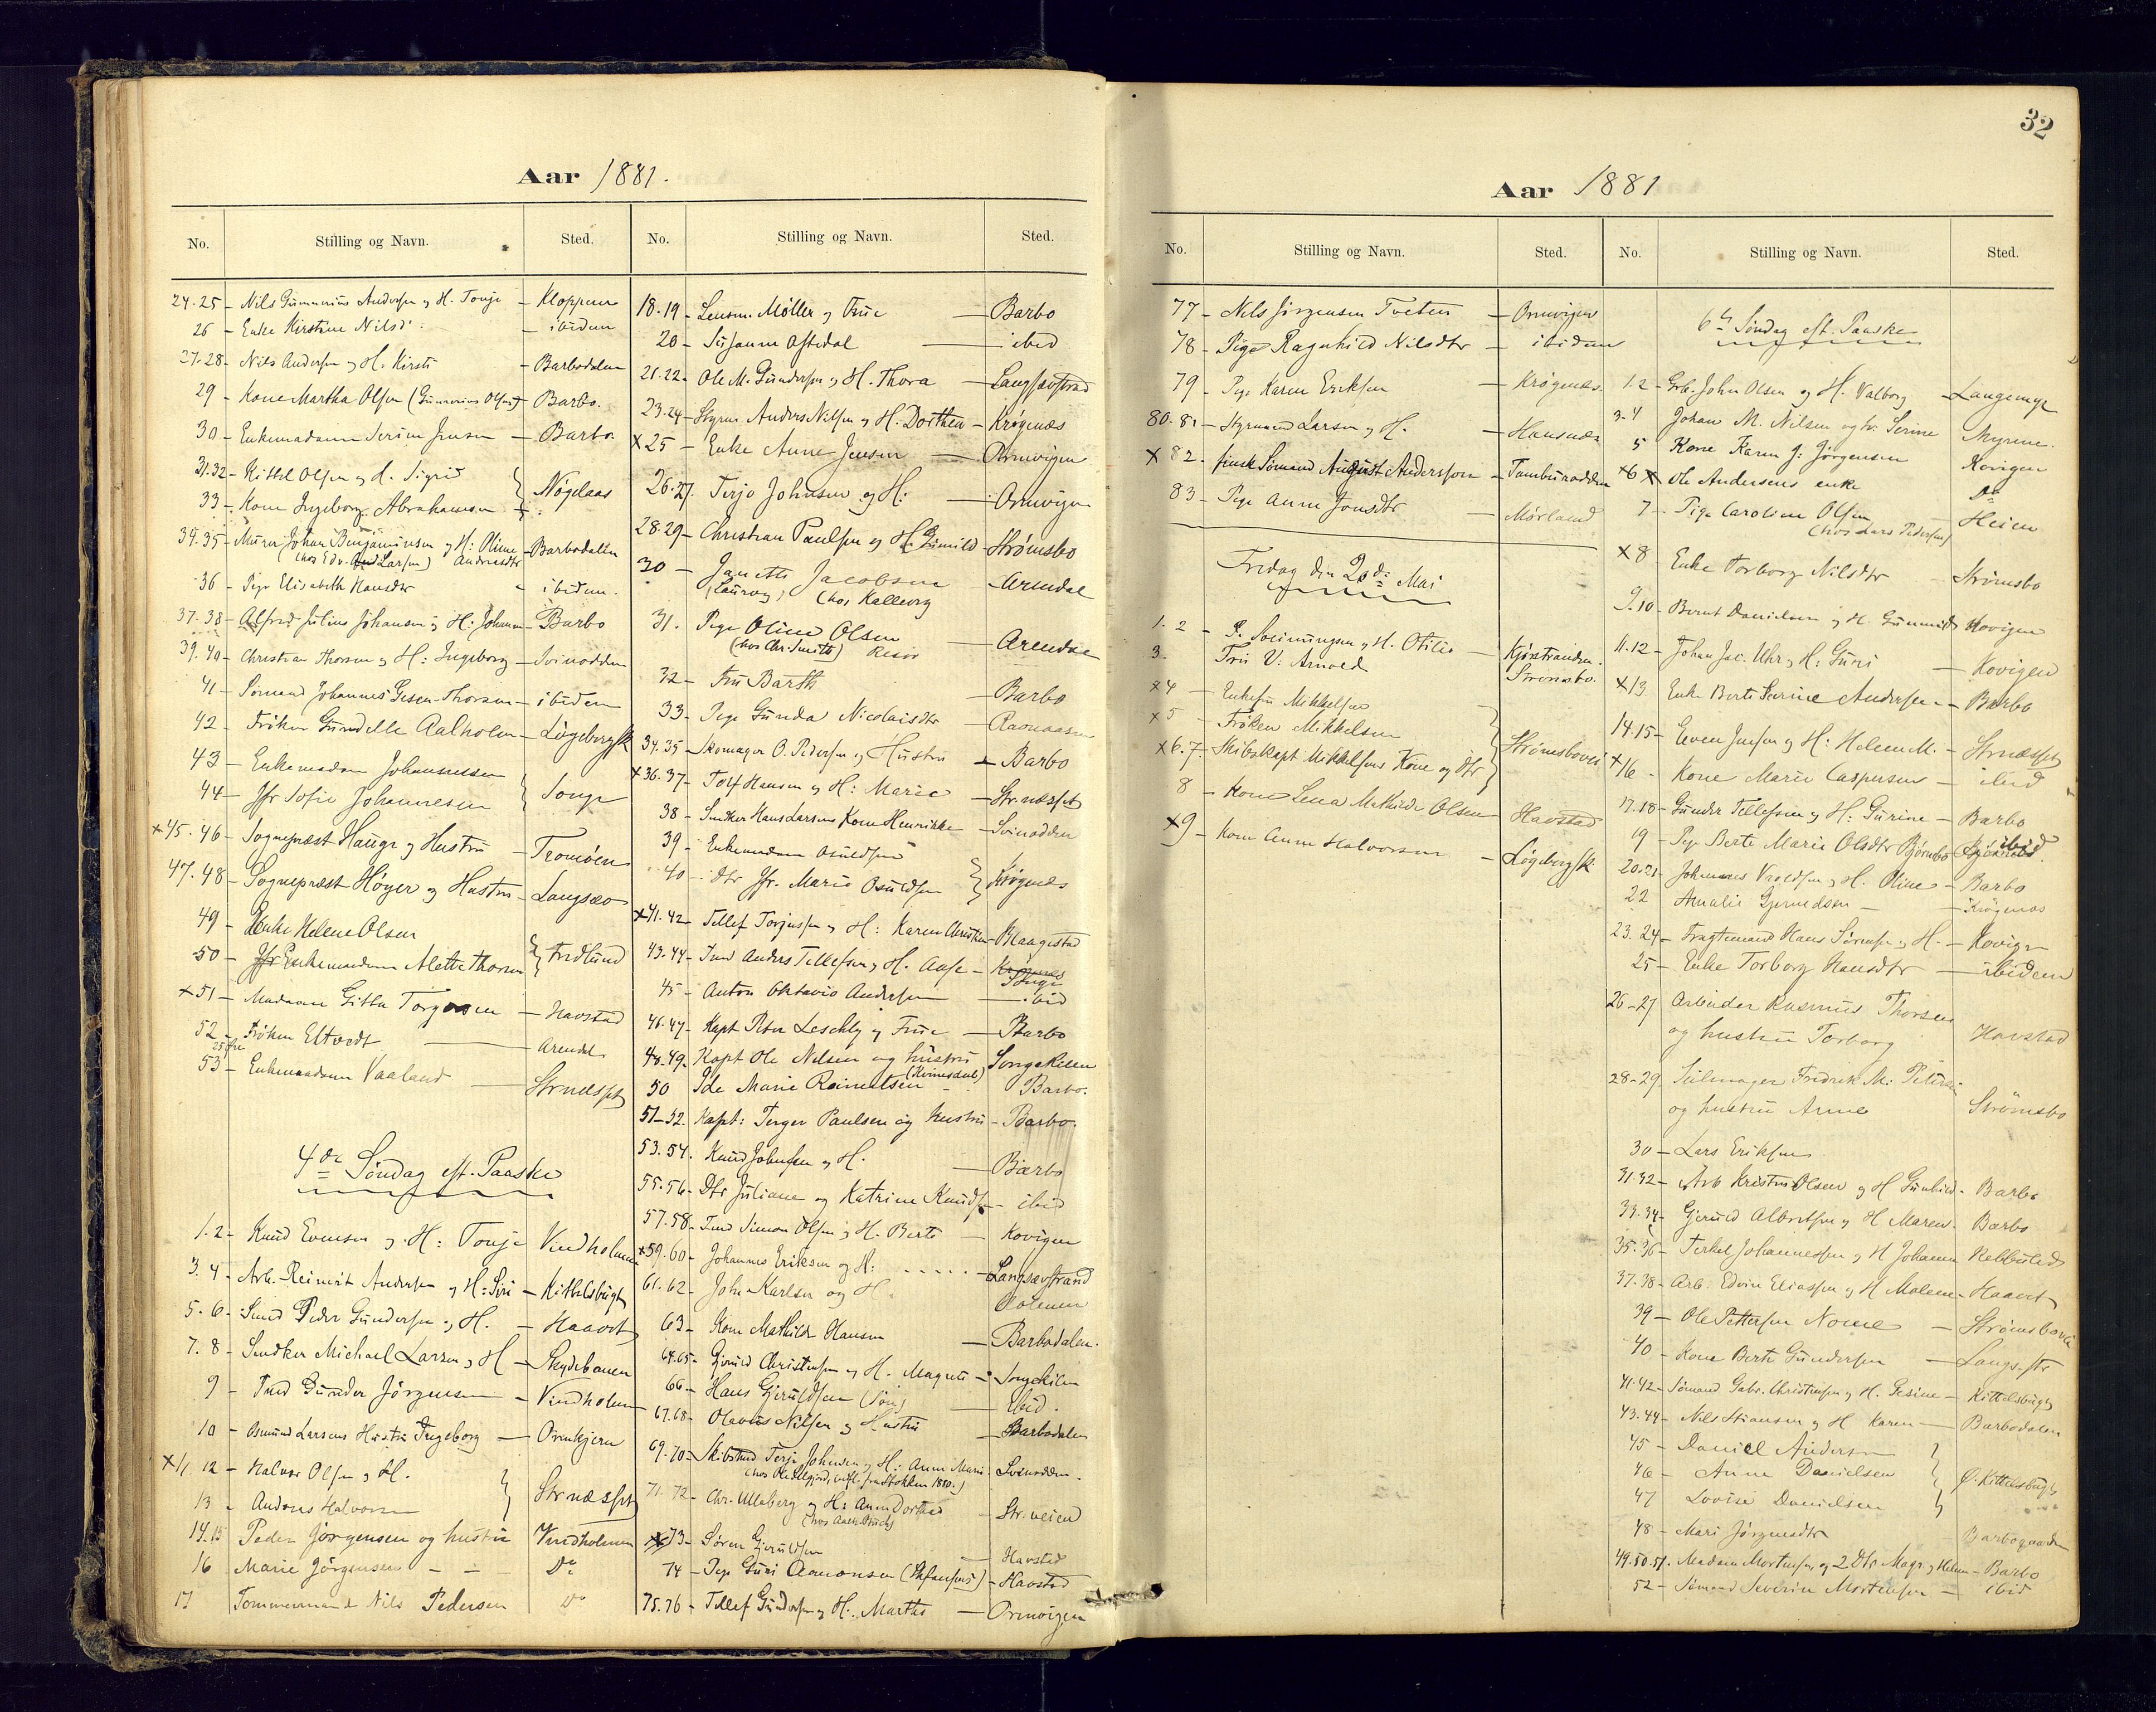 Aar 1881.
No. Stilling og Navn. Sted.
24-25 - Nils Gunnerius Andersen og H. Tonje - Kloppene
26 - Enke Kirstine Nilsd. - ibidem
27-28 - Nils Andersen og H. Kirsti - Barbodalen
29 - Kone Martha Olsen (Gunnerius Olsens) - Barbo.
30 - Enkemadam Serine Jensen - Barbo
31.32 - Kittel Olsen og H. Sigrid
33 - Kone Ingeborg Abrahamsen - Nøgelaas
34.35 - Murer Johan Benjaminsen og H: Oline Andreasdtr - Barbodalen
(hos Edv. And Larsen)
36 - Pige Elisabeth Hansdtr - ibidem.
37-38 - Alfred Julius Johansen og H: Johanne - Barbo
39.40 - Christian Thorsen og H: Ingeborg - Svinodden
41 - Sømand Johannes Gesen Thorsen - ibidem
42 - Frøken Gundelle Aalholm - Løgebergsk
43 - Enkemadam Johannessen
44 - Jfr Sofie Johannesen - Songe
x45.46 - Sognepræst Hauge og Hustru - Tromøen
47.48 - Sognepræst Høyer og Hustru - Langsæo
49 - Enke Helene Olsen
50 - Jfr Enkemadam Alette Thorsen - Fredlund
x51 - Madam Gitta Torgersen - Havstad
52 - Frøken Eltvedt - Arendal
53 - Enkemadam Vaaland - Strnæsset
4de Søndag eft. Paaske
1.2 - Knud Evensen og H: Tonje Vindholmen
3.4 - Arb. Reinert Andersen og H: Siri - Kittelsbugt
5.6 - Smed Peder Gundersen og H. - Haavet
7.8 - Snedker Michael Larsen og H - Skydebanen
9 - Tmd Gunder Jörgensen - Vindholmen
10 - Osmund Larsens Hustru Ingeborg - Ørnkjern
x11.12 - Halvor Olsen og H.
13 - Anders Halvorsen - Strnæsset
14.15 Peder Jørgensen og hustru Vindholmen
16 Marie Jörgensen - - - Do
17 Tømmermand Nils Pedersen Do
No. Stilling og Navn. Sted.
18.19 - Lensm. Møller og Frue - Barbo
20 - Susanne Oftedal - ibid
21.22 - Ole M. Gundersen og H. Thora - Langsævstrand
23.24 - Styrm Anders Nilsen og H. Dorthea - Krøgenæs
x25 - Enke Anne Jensen - Ormvigen
26.27. Terje Johnsen og H: - Ormvigen
28.29 - Christian Paulsen og H Gunild - Strømsbo
30 - Janette Jacobsen - Arendal
(Laurvig) (hos Kallevig
31. Pige Oline Olsen - Arendal
(hos Chr. Smith) Risør
32 - Fru Barth - Barbo
33 - Pige Gunda Nicolaisdtr
34.35 - Skomager O. Pedersen og Hustru - Barbo
x36.37 - Tolf Hansen og H: Marie - Strnæsset
38 - Snedker Hans Larsens Kone Henrikke - Svinodden
39 - Enkemadam Osuldsen
40 - dtr Jfr. Marie Osuldsen - Krøgnæs
x41.42 - Tellef Torjussen og H: Karen Christine - Blaagestad
43.44 - Tmd Anders Tellefsen og H. Aase - Songe
45 - Anton Oktavio Andersen - ibid
46.47 - Kapt Peter Leschly og Frue - Barbo
48.49. Kapt Ole Nilsen og hustru Songekilen
50 Ide Marie Reinertsen (Kvinesdal) - Barbo.
51-52. Kapt: Terger Paulsen og hustru - Barbo.
53.54. Knud Johnsen og H. - Barbo
55.56 - Dtr Juliane og Katrine Knudsen - ibid
57.58 - Tmd Simon Olsen og H. Berte - Kovigen
x59.60 - Johannes Eriksen og H: - Langsævstrand
61.62 - John Karlsen og H.
63 - Kone Mathilde Hansen - Barbodalen.
64.65 - Gjeruld Christensen og H. Magnete - Songekilen
66 - Hans Gjeruldsen (Søn) - ibid.
67.68 - Olavus Nilsen og Hustru - Barbodalen
69.70 - Skibstmd Terje Johnsen og H: Anne Marie - Svinodden.
71.72 - Chr. Ullaberg og H: Anne Dorthea - Str.veien
x73 - Søren Gjeruldsen - Havsted
74 - Pige Guri Aanonsen (Stefansens) - Havstad
75.76 - Tellef Gundersen og H. Marthe - Ormvigen
32
Aar 1881
No. Stilling og Navn. Sted.
77 - Nils Jörgensen Tveten - Ormvigen
78 - Pige Ragnhild Nilsdtr - ibidem
79 - Pige Karen Eriksen - Krøgenæs.
80.81 - Styrmand Larsen og H. - Hansnæs
x82 - finsk Sømand August Andersson - Tambunodden
83 - Pige Anne Jonsdtr - Mørland
Fredag den 20de Mai
1.2 - P. Søeimungsen og H. Otilie - Kjøstranden.
3. Fru V: Arnold Strømsbo.
x4 - Enkefru Mikkelsen
x5 - Frøken Mikkelsen
x6.7. Skibskapt Mikkelsens Kone og dtr - Strømsboveien
8 - Kone Lena Mathilde Olsen - Havstad
x9 - Kone Anne Halvorsen - Løgebergsk
No. Stilling og Navn. Sted.
6te Søndag eft. Paaske
1.2 - Grb. John Olsen og H. Valborg - Langemyr
3-4 Johan M. Nilsen og h. Serine Myrene.
5 Kone Karen J: Jørgensen Kovigen
x6 Ole Andersens enke Do
7 - Pige Caroline Olsen - Heien
(hos Lars Pedersen)
x8 Enke Torborg Nilsdtr Strömsbo
9.10 - Bernt Danielsen og H. Gunnild Kovigen
11.12 - Johan Jac. Uhr og H: Guri - Kovigen
x13 Enke Berte Serine Andersen - Barbo
14.15 - Even Jensen og H: Helene M. - Strnæsset
x16 - Kone Marie Caspersen - ibid
17.18 - Gunder Tellefsen og H: Gurine - Barbo
19 - Pige Berte Marie Olsdtr Bjørnebo - ibid.
20.21 - Johannes Vroldsen og H. Oline - Barbo
22 Amalie Gjermedsen - Krögenæs
23.24 - Fragtemand Hans Sørensen og H. - Kovigen
25 - Enke Torborg Hansdtr - ibidem
26-27 Arbeider Rasmus Thorsen
og hustru Torborg Havstad
28-29 Seilmager Fredrik M: Petersen
og hustru Anne Strömsbo
30 - Lars Eriksen
31.32 - Arb Kristen Olsen og H Gunhild - Barbo
33.34 - Gjeruld Albertsen og H Maren - Barbo
35.36 - Terkel Johannessen og H Johanne
37.38 - Arb. Edvin Eliassen og H Malene - Haavet
39 - Ole Pettersen Nome - Strömsboveien
40 - Kone Berte Gundersen - Langs.str
41.42 - Sømand Gabr. Christensen og H. Gesine - Kittelsbugt
43.44 - Nils Hansen og H Karen - Barbodalen
45 - Daniel Andersen
46 - Anne Danielsen Ø. Kittelsbugt
47 Lovise Danielsen
48 - Mari Jörgensdtr Barbogaarden
49.50.51. Madam Mortensen og 2 Dtr Magr. og Helene - Barbo
52 - Sømand Severin Mortensen - ibid